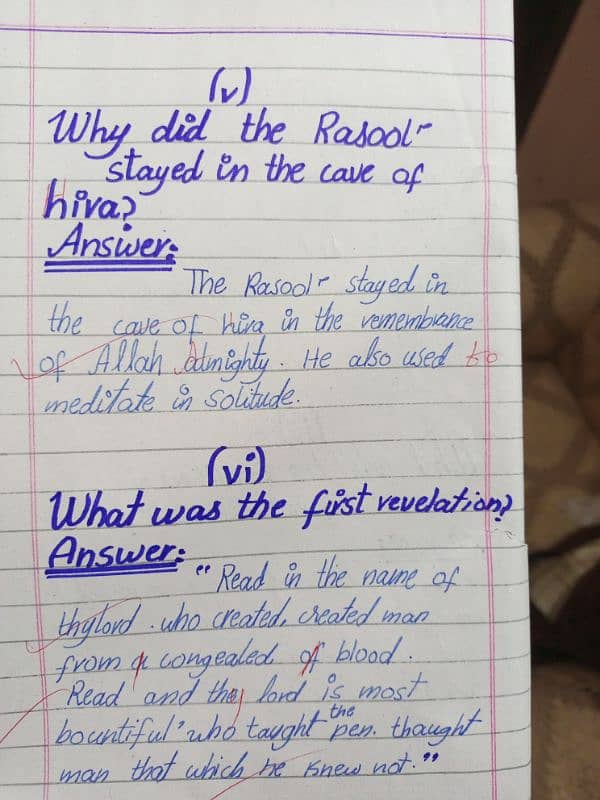 (v)
Why did the Rasool
stayed in the cave of
hira?
Answer:
The Rasool stayed in
the cave of hira in the remembrance
of Allah almighty. He also used to
meditate in solitude.
(vi)
What was the first revelation?
Answer:
"Read in the name of
thylord. who created, created man
from a congealed of blood.
Read and they lord is most
bountiful' who taught the pen. thaught
man that which he knew not."